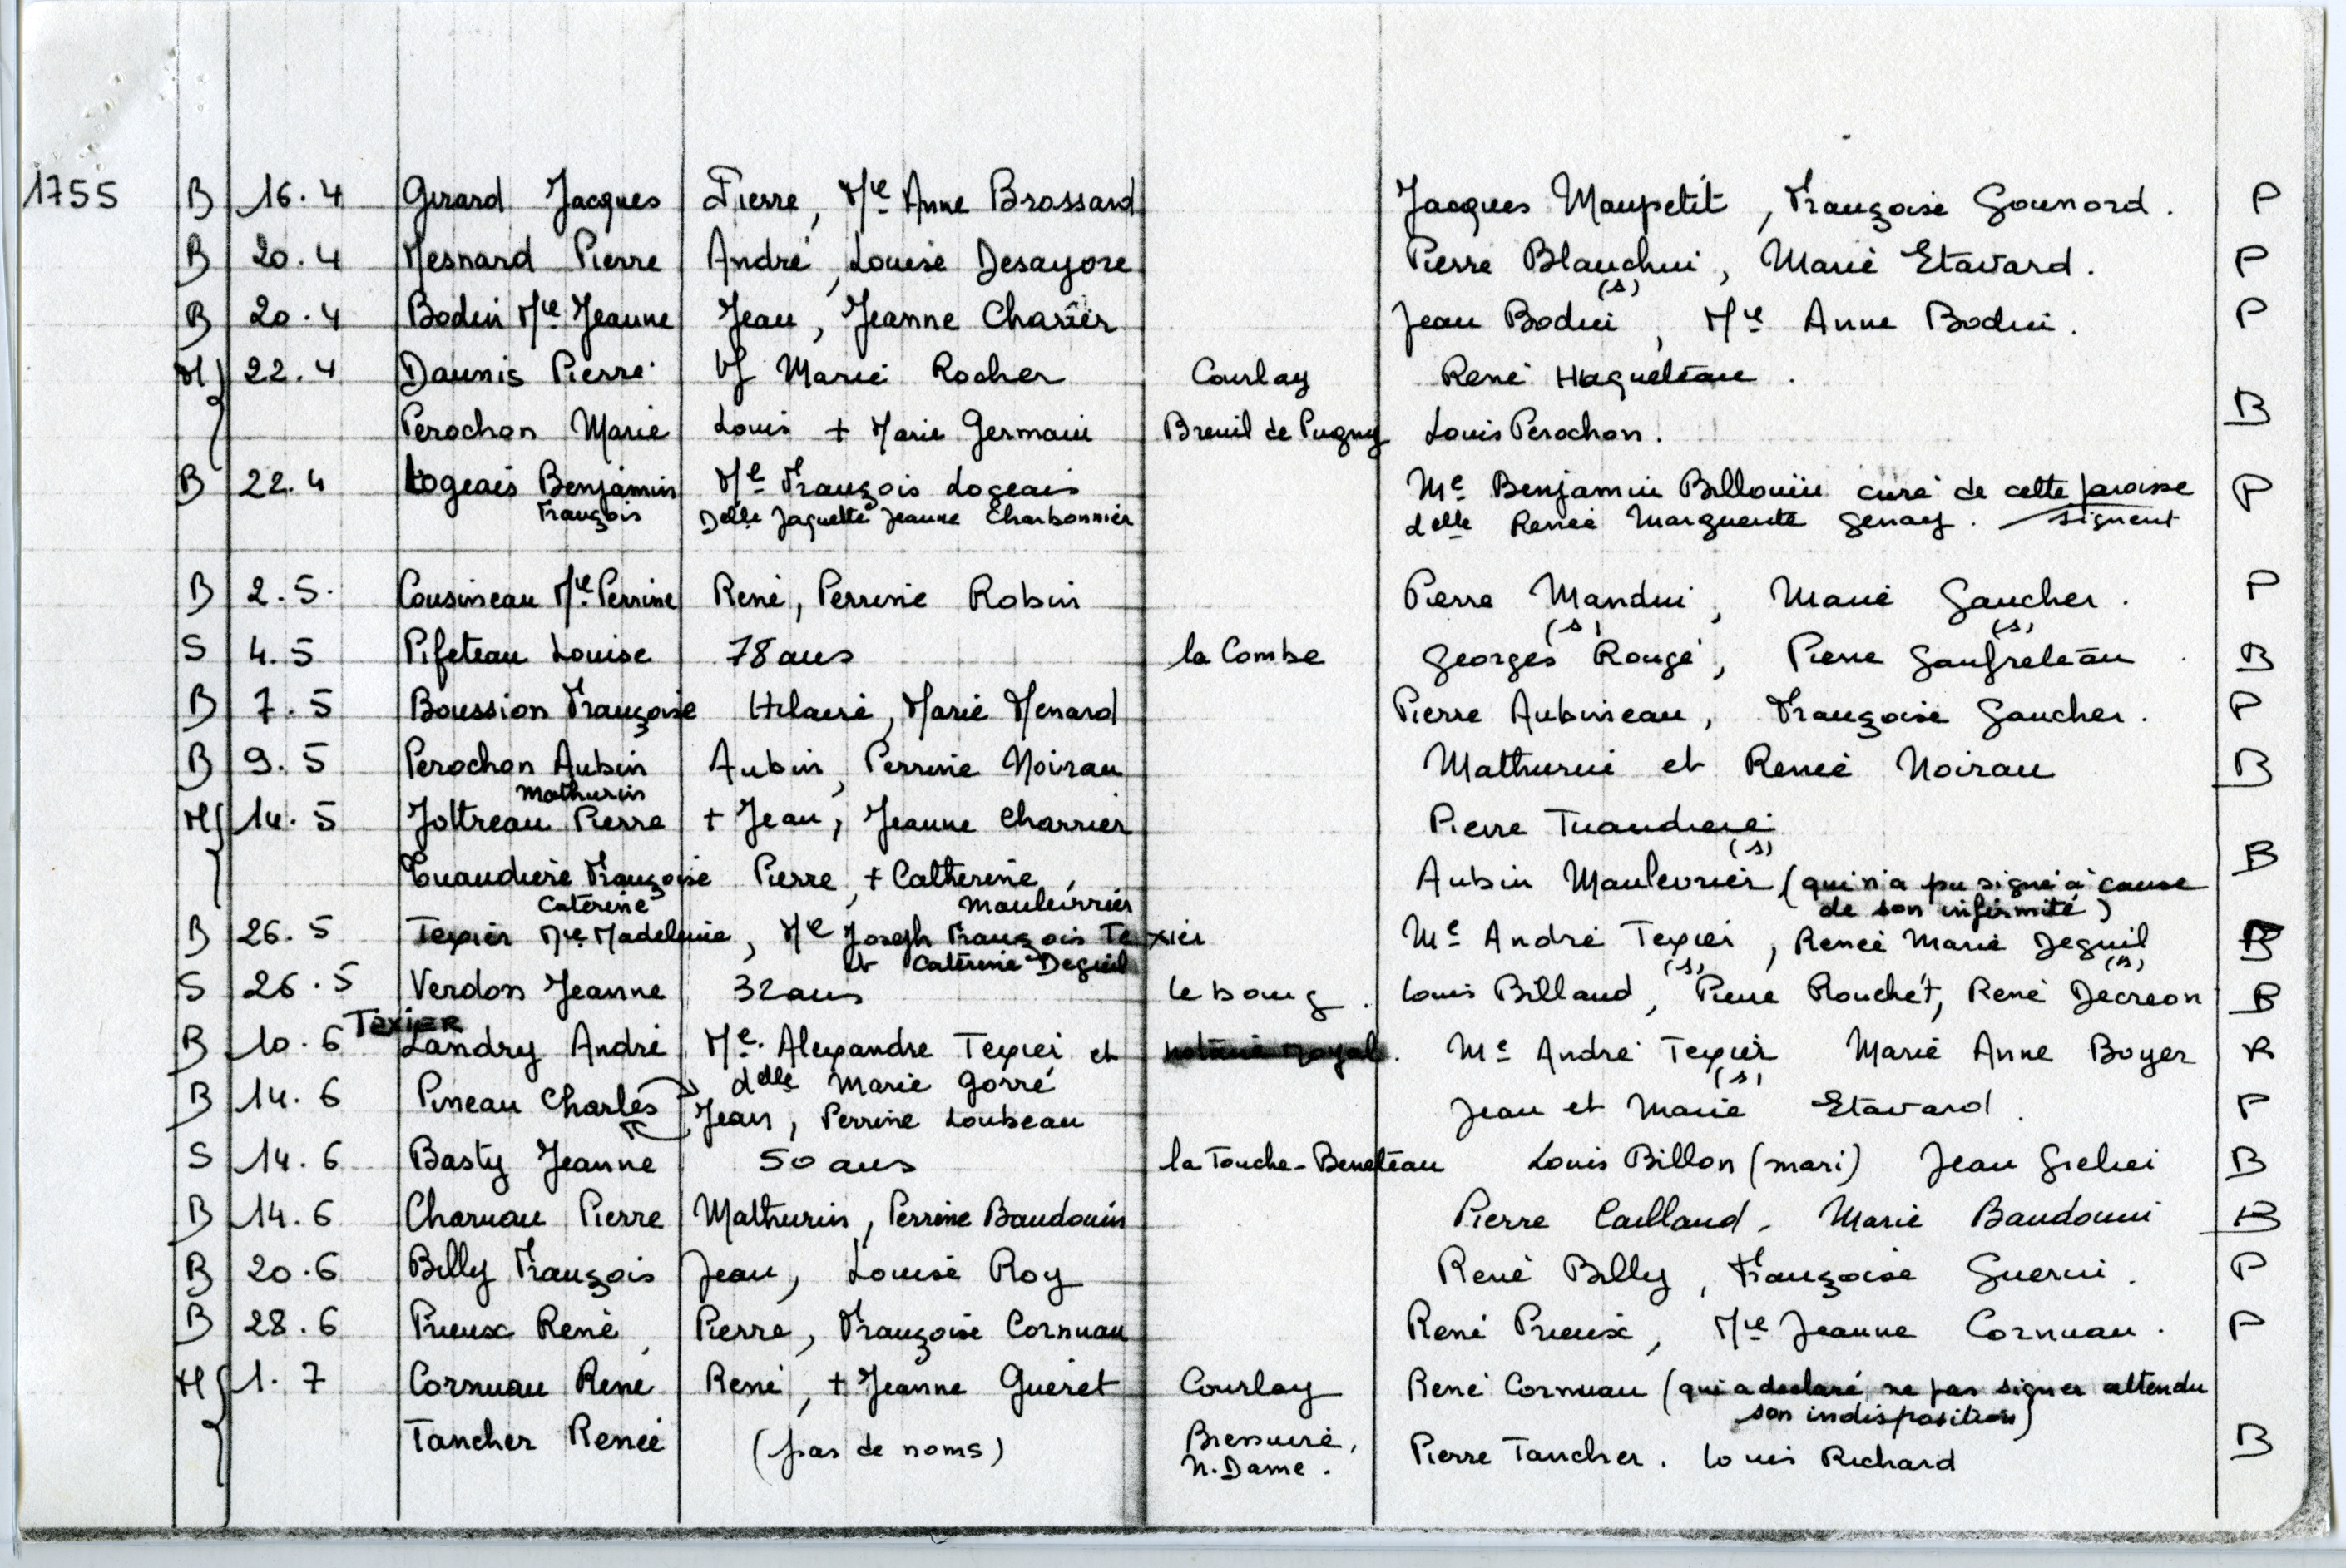 1755 B 16.4 Girard Jacques Pierre, Mie Anne Brossard Jacques Maupetit, Françoise Gounord. P
B 20.4 Mesnard Pierre André, Louise Desayore Pierre Blanchin, Marie Etavard. P
(s)
B 20.4 Bodin Mie Jeanne Jean, Jeanne Charier Jean Bodin, Mie Anne Bodin. P
M 22.4 Daunis Pierre vf Marie Rocher Courlay René Hugueteau.
B
Perochon Marie Louis + Marie Germain Breuil de Pugny Louis Perochon.
B 22.4 Logeais Benjamin Me François Logeais Me Benjamin Billouin curé de cette paroisse P
François Delle Jaquette Jeanne Charbonnier delle Renée Marguerite Genay. signent
B 2.5. Cousineau Mie Perrine René, Perrine Robin Pierre Mandin, Marie Gaucher. P
(s) (s)
S 4.5 Pifeteau Louise 78 ans la Combe Georges Rougé, Pierre Gaufreteau. B
B 7.5 Boussion Françoise Hilaire, Marie Menard Pierre Aubineau, Françoise Gaucher. P
B 9.5 Perochon Aubin Aubin, Perrine Noirau Mathurin et Renée Noirau B
Mathurin
M 14.5 Jottreau Pierre + Jean, Jeanne Charrier Pierre Tuandiere
(s)
B
Tuaudière Françoise Pierre, + Catherine, Aubin Maulevrier (qui n'a pu signé à cause
Caterine Maulevrier de son infirmité)
B 26.5 Texier Mie Madeleine, Me Joseph François Texier Me André Texier, Renée Marie Deguil B
et Caterine Deguil (s) (s)
S 26.5 Verdon Jeanne 32 ans le bourg. Louis Billaud, Pierre Rouchet, René Decreon B
Texier
B 10.6 Landry André Me. Alexandre Texier et notaire royal. Me André Texier Marie Anne Boyer R
delle Marie Gorré (s)
B 14.6 Pineau Charles Jean, Perrine Loubeau Jean et Marie Etavard. P
S 14.6 Basty Jeanne 50 ans la Touche-Beneteau Louis Billon (mari) Jean Grelier B
B 14.6 Charuau Pierre Mathurin, Perrine Baudouin Pierre Caillaud, Marie Baudouin B
B 20.6 Billy François Jean, Louise Roy René Billy, Françoise Guerin. P
B 28.6 Prieux René, Pierre, Françoise Cornuau René Prieux, Mie Jeanne Cornuau. P
M 1.7 Cornuau René René, + Jeanne Guéret Courlay René Cornuau (qui a declaré ne pas signer attendu
son indisposition)
Tancher Renée (pas de noms) Bressuire, Pierre Tancher. Louis Richard B
N. Dame.